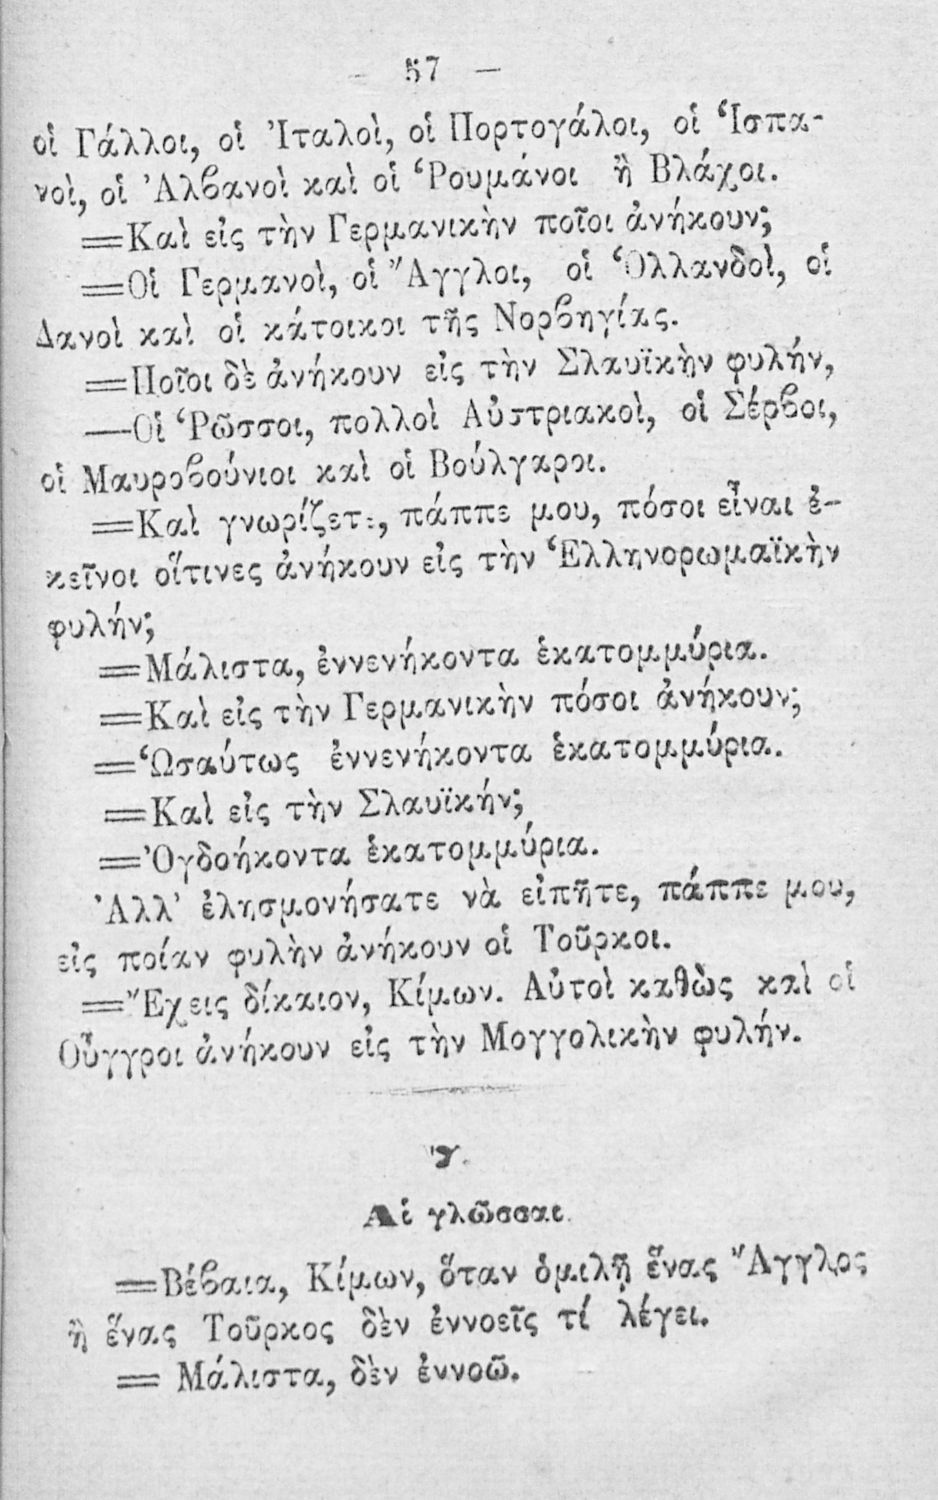 — 57 —
οἱ Γάλλοι, οἱ Ἰταλοὶ, οἱ Πορτογάλοι, οἱ Ἱσπα-
νοὶ, οἱ Ἀλϐανοὶ καὶ οἱ Ῥουμάνοι ἢ Βλάχοι.
=Καὶ εἰς τὴν Γερμανικὴν ποῖοι ἀνήκουν;
=Οἱ Γερμανοὶ, οἱ Ἄγγλοι, οἱ Ὁλλανδοὶ, οἱ
Δανοὶ καὶ οἱ κάτοικοι τῆς Νορϐηγίας.
=Ποῖοι δὲ ἀνήκουν εἰς τὴν Σλαυϊκὴν φυλήν,
—Οἱ Ῥῶσσοι, πολλοὶ Αὐστριακοὶ, οἱ Σέρϐοι,
οἱ Μαυροϐούνιοι καὶ οἱ Βούλγαροι.
=Καὶ γνωρίζετε, πάππε μου, πόσοι εἶναι ἐ-
κεῖνοι οἵτινες ἀνήκουν εἰς τὴν Ἑλληνορωμαϊκὴν
φυλήν;
=Μάλιστα, ἐννενήκοντα ἑκατομμύρια.
=Καὶ εἰς τὴν Γερμανικὴν πόσοι ἀνήκουν;
=Ὡσαύτως ἐννενήκοντα ἑκατομμύρια.
=Καὶ εἰς τὴν Σλαυϊκήν;
=Ὀγδοήκοντα ἑκατομμύρια.
Ἀλλ’ ἐλησμονήσατε νὰ εἰπῆτε, πάππε μου,
εἰς ποίαν φυλὴν ἀνήκουν οἱ Τοῦρκοι.
=Ἔχεις δίκαιον, Κίμων. Αὐτοὶ καθὼς καὶ οἱ
Οὗγγροι ἀνήκουν εἰς τὴν Μογγολικὴν φυλήν.
γ.
Αἱ γλῶσσαι.
=Βέϐαια, Κίμων, ὅταν ὁμιλῇ ἕνας Ἄγγλος
ἢ ἕνας Τοῦρκος δὲν ἐννοεῖς τί λέγει.
= Μάλιστα, δὲν ἐννοῶ.